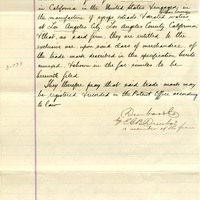 in California in the United States & engaged in
the manufacture of
at Los Angeles City, Los Angeles County, California,
& that, as said firm, they are entitled to the
exclusive use, upon said class of merchandise, of
the trade mark described in the specification hereto
annexed & shown in the fac similes to be
herewith filed.
They therefore pray that said trade mark may
be registered & recorded in the Patent Office according
to law
a member of the firm